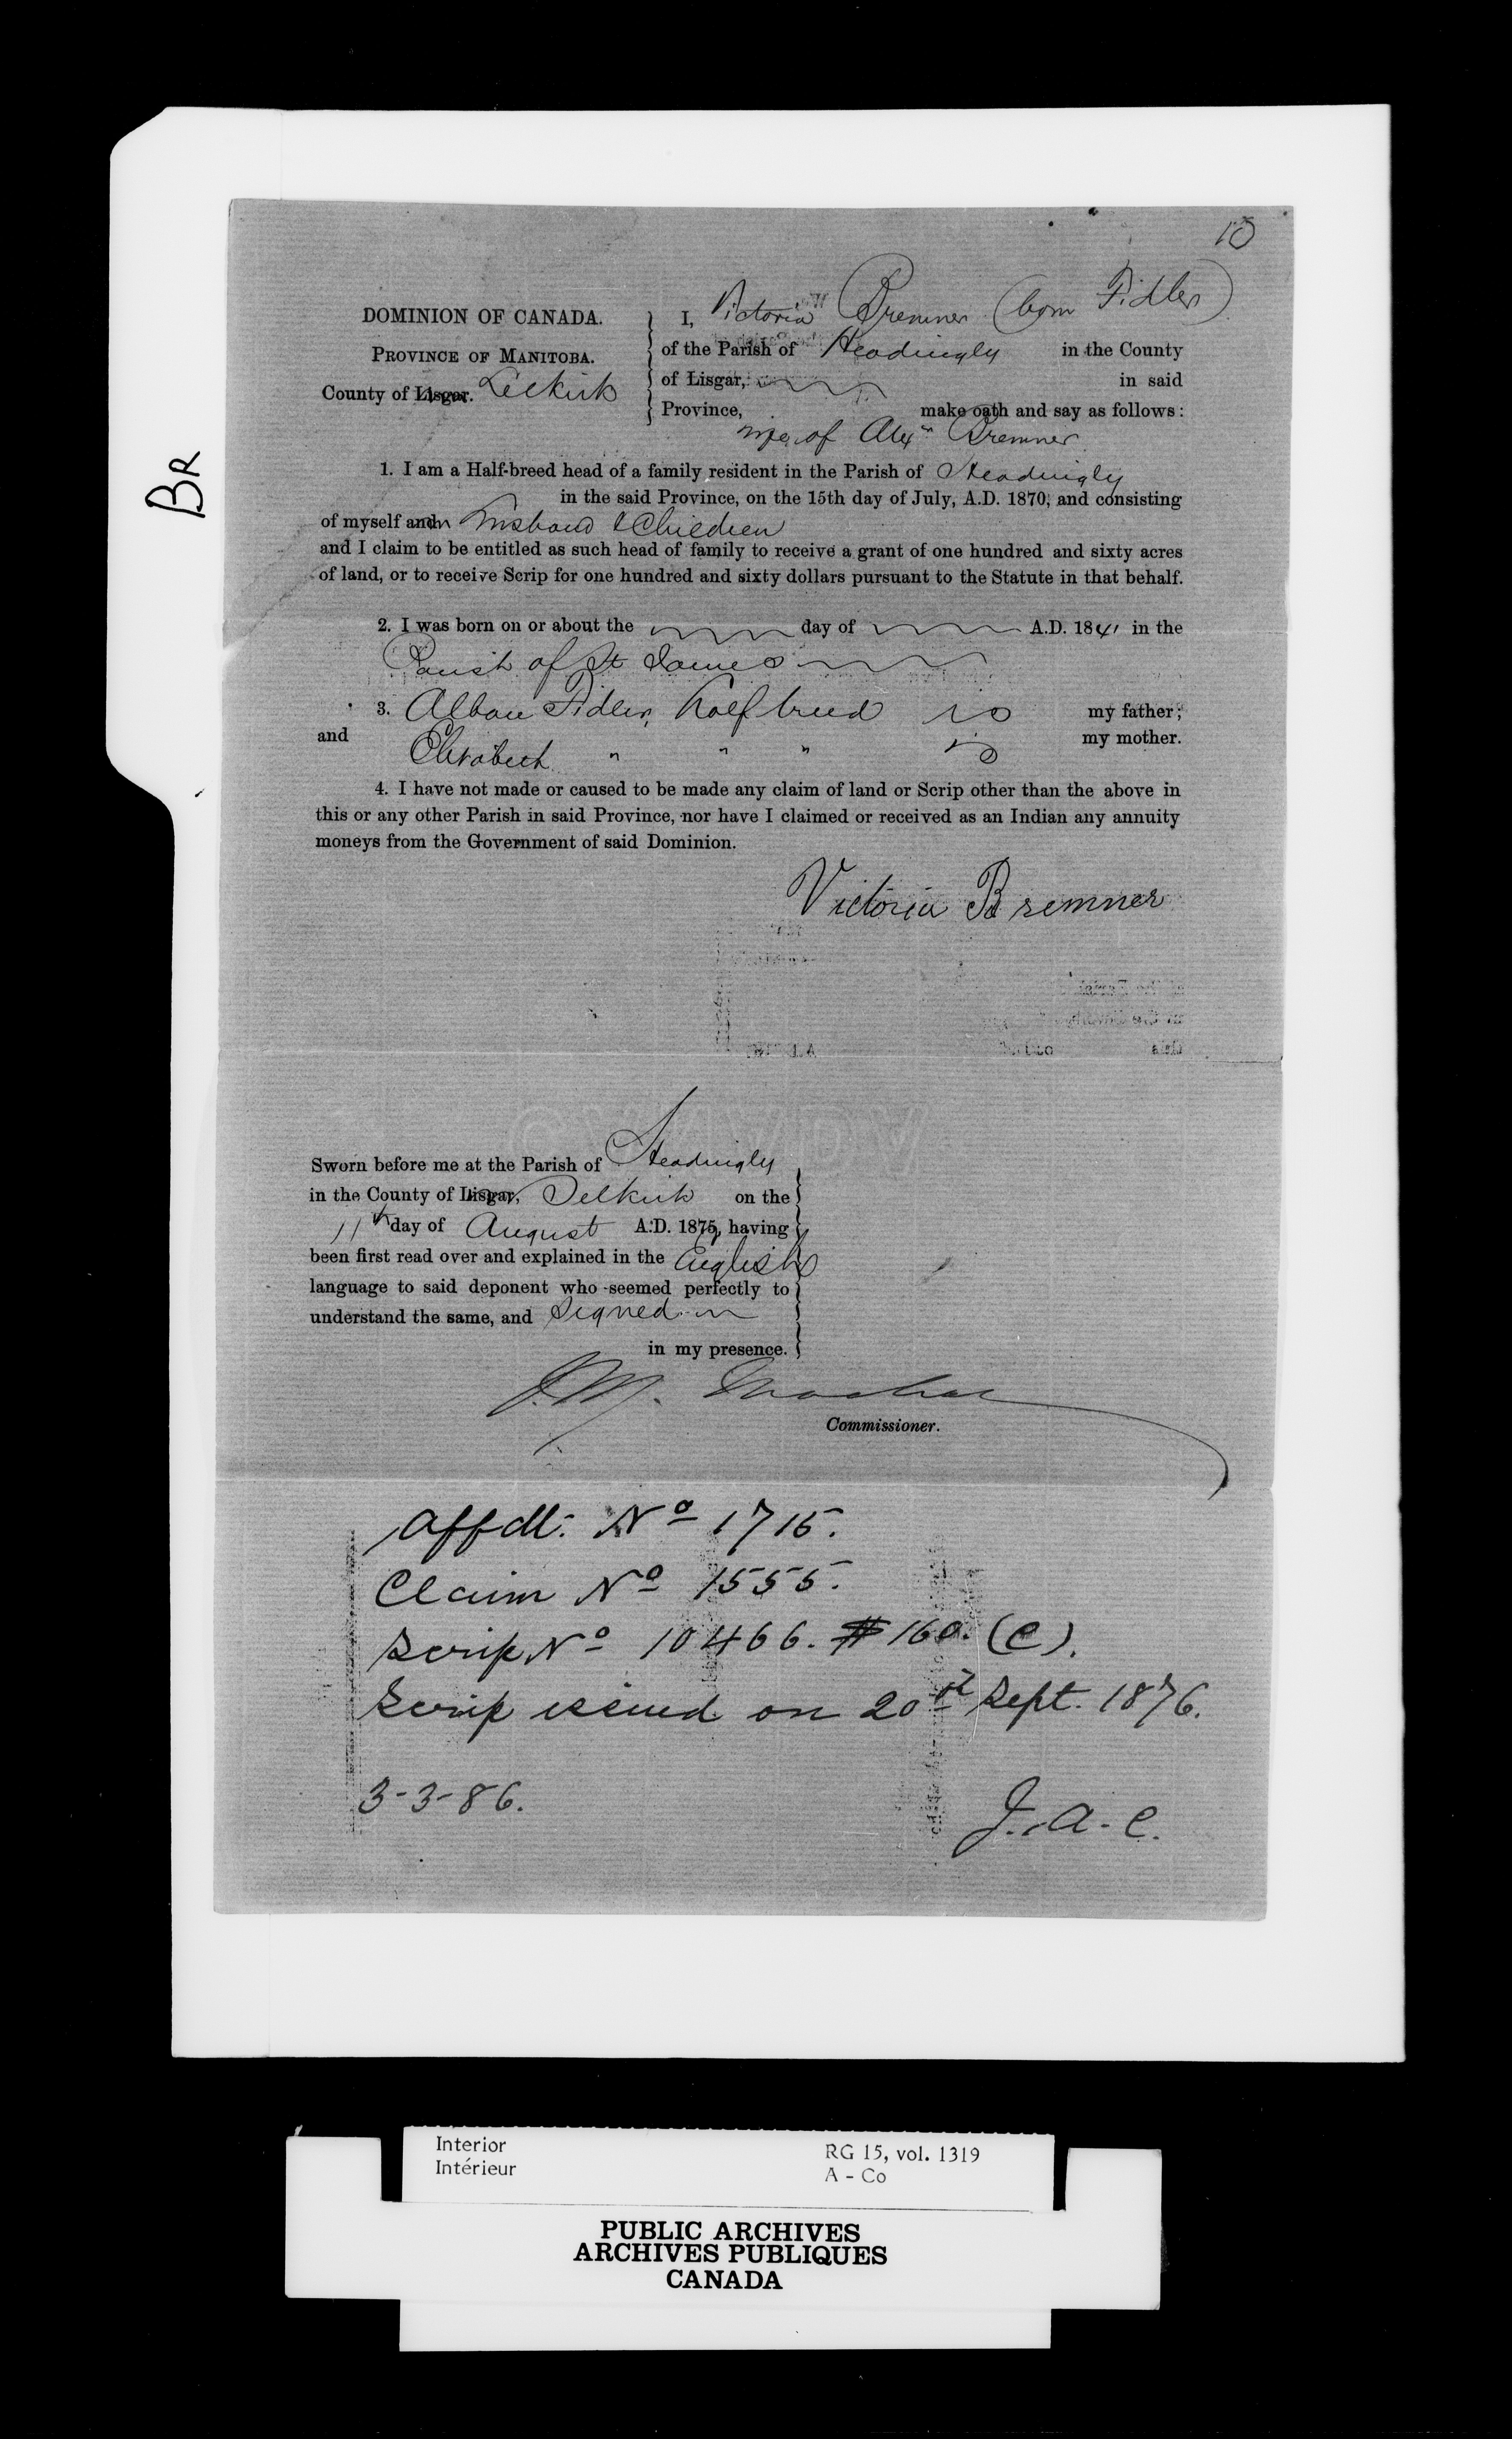 10
BR
DOMINION OF CANADA.
PROVINCE OF MANITOBA.
County of Lisgar. Selkirk
I, Victoria Bremner (born Fidler)
of the Parish of Headingly in the County
of Lisgar, in said
Province, make oath and say as follows:
wife of Alexr Bremner
1. I am a Half-breed head of a family resident in the Parish of Headingly
in the said Province, on the 15th day of July, A.D. 1870, and consisting
of myself and Husband & Children
and I claim to be entitled as such head of family to receive a grant of one hundred and sixty acres
of land, or to receive Scrip for one hundred and sixty dollars pursuant to the Statute in that behalf.
2. I was born on or about the day of A.D. 1841 in the
Parish of St James
3. Alban Fidler, halfbreed is my father;
and Elizabeth " " " is my mother.
4. I have not made or caused to be made any claim of land or Scrip other than the above in
this or any other Parish in said Province, nor have I claimed or received as an Indian any annuity
moneys from the Government of said Dominion.
Victoria Bremner
Sworn before me at the Parish of Headingly
in the County of Lisgar, Selkirk on the
11th day of August A.D. 1875, having
been first read over and explained in the English
language to said deponent who seemed perfectly to
understand the same, and signed
in my presence.
J.M. Machar
Commissioner.
Affdt: No 1715.
Claim No 1555.
Scrip No 10466. $160. (C).
Scrip issued on 20th Sept. 1876.
3-3-86.
J. A. C.
Interior
Intérieur
RG 15, vol. 1319
A - Co
PUBLIC ARCHIVES
ARCHIVES PUBLIQUES
CANADA